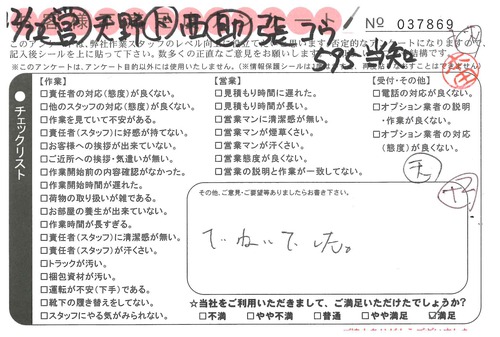 営 天野 ド 西 助
No 037869
このアンケートは、弊社作業スタッフのレベル向上
※このアンケートは、アンケート目的以外には使用いたしません。
チェックリスト
【作業】
□責任者の対応(態度)が良くない。
□他のスタッフの対応(態度)が良くない。
□作業を見ていて不安がある。
□責任者(スタッフ)に好感が持てない。
□お客様への挨拶が出来ていない。
□ご近所への挨拶・気遣いが無い。
□作業開始前の内容確認がなかった。
□作業開始時間が遅れた。
□荷物の取り扱いが雑である。
□お部屋の養生が出来ていない。
□作業時間が長すぎる。
□責任者(スタッフ)に清潔感が無い。
□責任者(スタッフ)が汗くさい。
□トラックが汚い。
□梱包資材が汚い。
□運転が不安(下手)である。
□靴下の履き替えをしてない。
□スタッフにやる気がみられない。
【営業】
□見積もり時間に遅れた。
□見積もり時間が長い。
□営業マンに清潔感が無い。
□営業マンが煙草くさい。
□営業マンが汗くさい。
□営業態度が良くない。
□営業の説明と作業が一致してない。
【受付・その他】
□電話の対応が良くない。
□オプション業者の説明
・作業が良くない。
□オプション業者の対応
(態度)が良くない。
天
その他、ご意見・ご要望等ありましたらお書き下さい。
ていねいでした。
☆当社をご利用いただきまして、ご満足いただけたでしょうか?
□不満 □やや不満 □普通 □やや満足 ☑満足